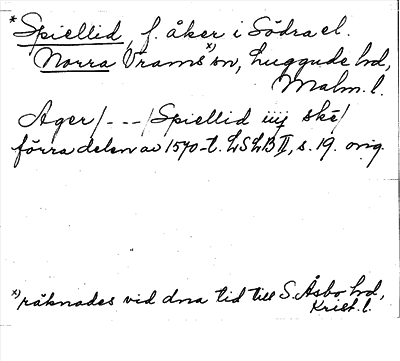 * Spiellid, f. åker i Södra el.
Norra Vrams *) sn, Luggude hd,
Malm. l.
Ager/ - - - /Spiellid iiij ske/
förra delen av 1570-t. LSLB II, s. 19. orig.
*) räknades vid dna tid till S. Åsbo hd,
Krist. l.